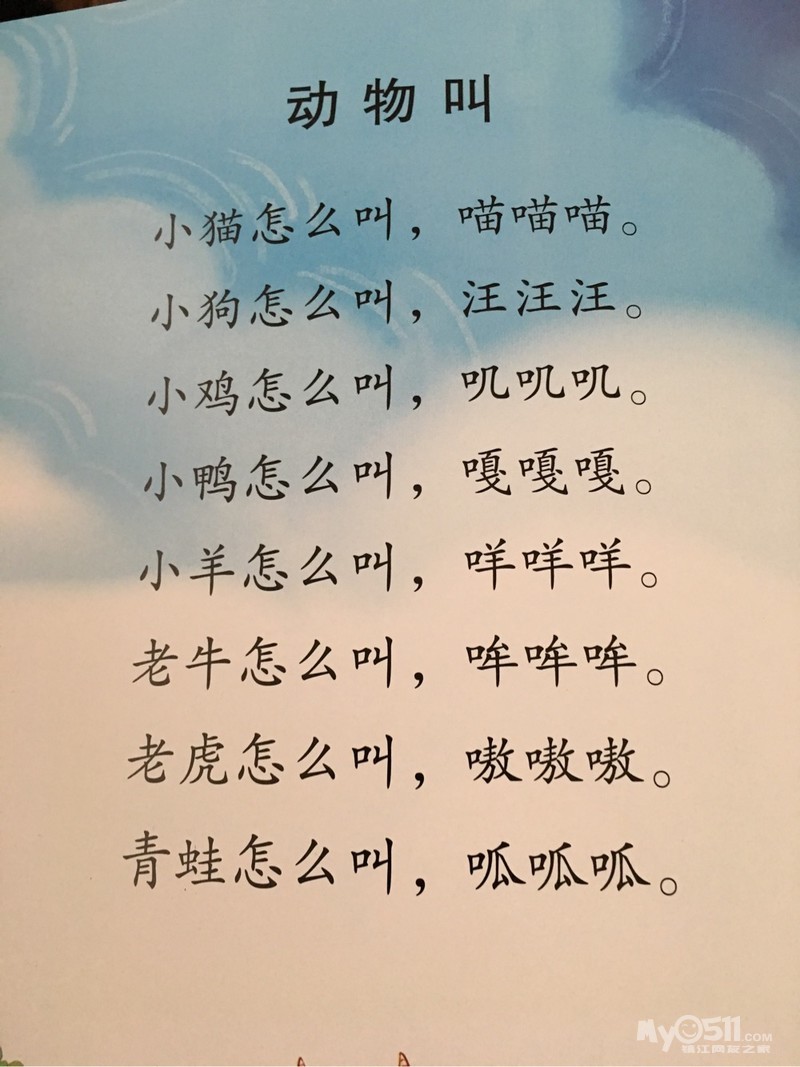 动物叫
小猫怎么叫，喵喵喵。
小狗怎么叫，汪汪汪。
小鸡怎么叫，叽叽叽。
小鸭怎么叫，嘎嘎嘎。
小羊怎么叫，咩咩咩。
老牛怎么叫，哞哞哞。
老虎怎么叫，嗷嗷嗷。
青蛙怎么叫，呱呱呱。
My0511.COM
镇江网友之家